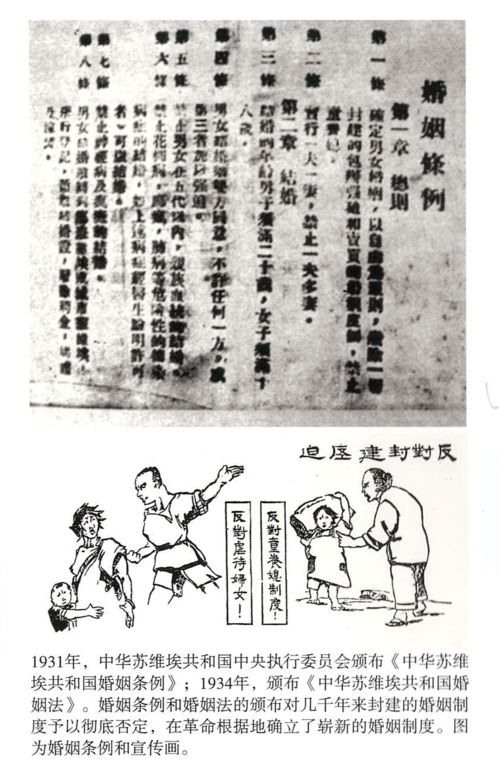 婚姻條例
第一章 總則
第一條 確定男女婚姻,以自由為原則,廢除一切
封建的包辦强迫和買賣的婚姻制度,禁止
童養媳。
第二條 實行一夫一妻,禁止一夫多妻。
第二章 結婚
第三條 結婚的年齡男子須滿二十歲,女子須滿十
八歲。
第四條 男女結婚須雙方同意,不許任何一方,或
第三者加以强迫。
第五條 禁止男女在五代以內,親族血統的結婚。
第六條 禁止花柳病,肺病等危險性的傳染
病症的結婚,如上述病症經醫生驗明許可
者,可以結婚。
第七條 禁止神經病及的結婚。
第八條 男女結婚須
舉行登記,領取結婚證,廢除聘金,聘禮
及嫁妝。
反對封建压迫
反對童養媳制度！
反對虐待婦女！
1931年，中华苏维埃共和国中央执行委员会颁布《中华苏维
埃共和国婚姻条例》；1934年，颁布《中华苏维埃共和国婚
姻法》。婚姻条例和婚姻法的颁布对几千年来封建的婚姻制
度予以彻底否定，在革命根据地确立了崭新的婚姻制度。图
为婚姻条例和宣传画。